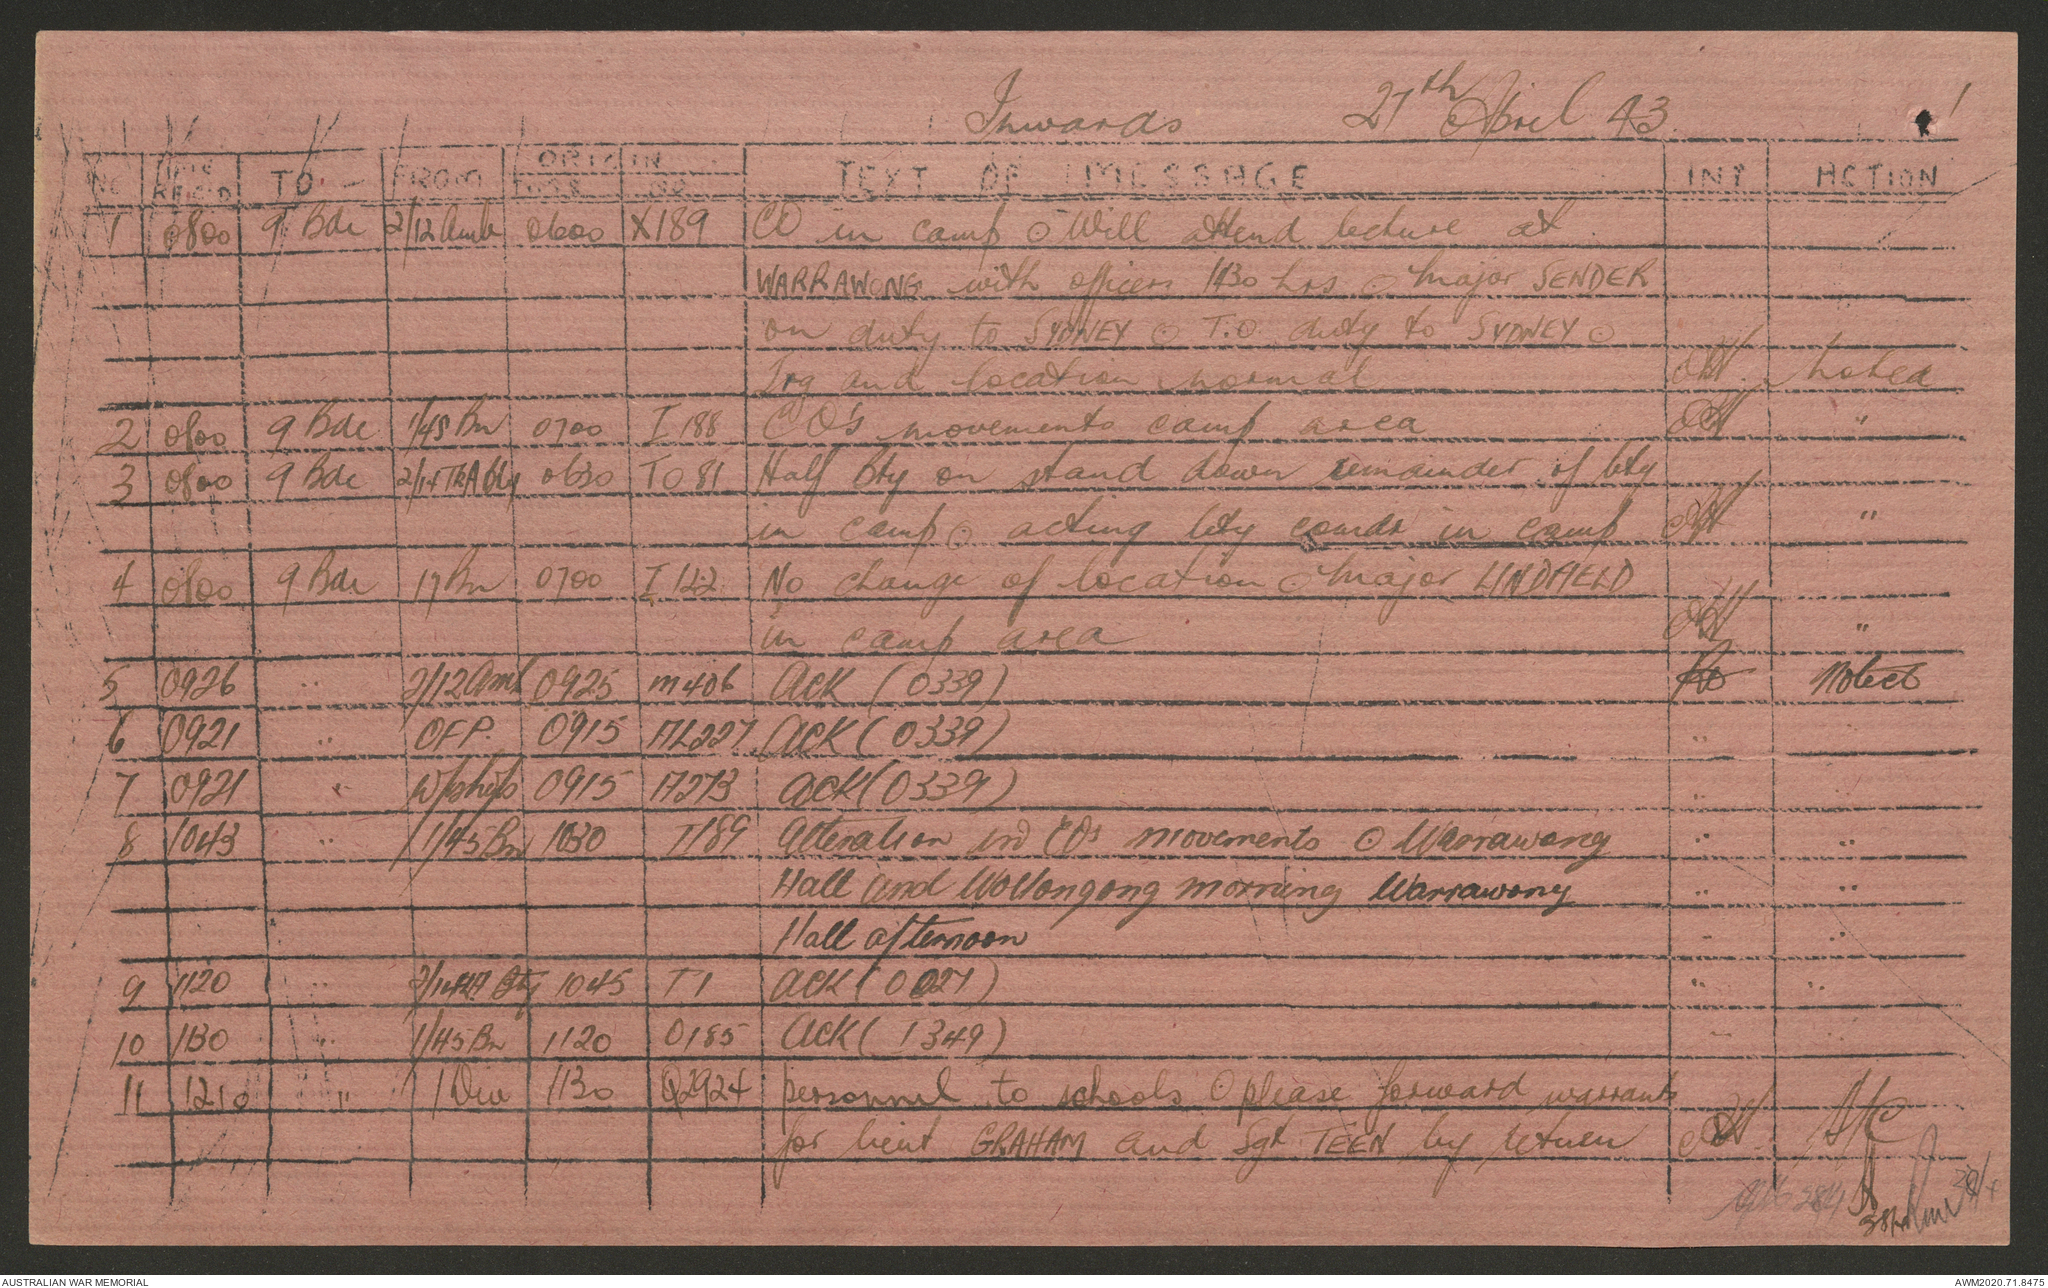 Inwards 27th April 43 1
NO TIME REC'D TO FROM ORIGIN TIME NO. TEXT OF MESSAGE INT ACTION
1 0800 9 Bde 2/12 Amb 0600 X189 CO in camp ⊙ Will attend lecture at
WARRAWONG with officers 1130 hrs ⊙ Major SENDER
on duty to SYDNEY ⊙ T.O. duty to SYDNEY ⊙
Trg and location normal noted
2 0800 9 Bde 1/45 Bn 0700 I 188 CO's movements camp area "
3 0800 9 Bde 0630 TO 81 Half bty on stand down remainder of bty
in camp ⊙ acting bty comdr in camp "
4 0800 9 Bde 17 Bn 0700 I 122 No change of location ⊙ Major LINDFIELD
in camp area "
5 0926 " 2/12 Amb 0925 M406 ACK (0339) Noted
6 0921 " OFP. 0915 ACK (0339) " "
7 0921 " W/shps 0915 A273 ACK (0339) " "
8 1043 " 1/45 Bn 1030 I189 Alteration in CO's movements ⊙ Warrawong " "
Hall and Wollongong morning Warrawong " "
Hall afternoon " "
9 1120 " 1045 T1 ACK (0027) " "
10 1130 " 1/45 Bn 1120 O185 ACK (1349) " "
11 1210 " 1 Div 1130 Q2924 personnel to schools ⊙ please forward warrants
for Lieut GRAHAM and Sgt TEEN by return
AUSTRALIAN WAR MEMORIAL AWM2020.71.8475